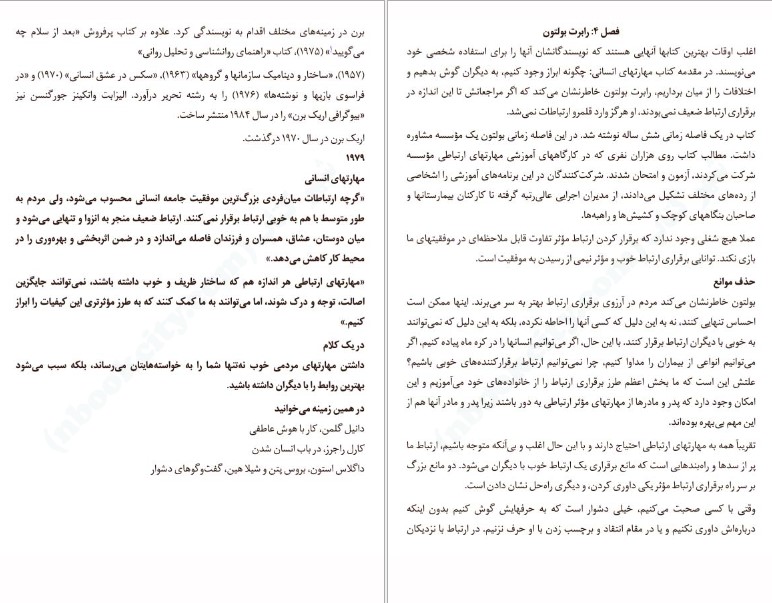 فصل ۴: رابرت بولتون
اغلب اوقات بهترین کتابها آنهایی هستند که نویسندگانشان آنها را برای استفاده شخصی خود
می‌نویسند. در مقدمه کتاب مهارتهای انسانی: چگونه ابراز وجود کنیم، به دیگران گوش بدهیم و
اختلافات را از میان برداریم، رابرت بولتون خاطرنشان می‌کند که اگر مراجعانش تا این اندازه در
برقراری ارتباط ضعیف نمی‌بودند، او هرگز وارد قلمرو ارتباطات نمی‌شد.
کتاب در یک فاصله زمانی شش ساله نوشته شد. در این فاصله زمانی بولتون یک مؤسسه مشاوره
داشت. مطالب کتاب روی هزاران نفری که در کارگاههای آموزشی مهارتهای ارتباطی مؤسسه
شرکت می‌کردند، آزمون و امتحان شدند. شرکت‌کنندگان در این برنامه‌های آموزشی را اشخاصی
از رده‌های مختلف تشکیل می‌دادند، از مدیران اجرایی عالی‌رتبه گرفته تا کارکنان بیمارستانها و
صاحبان بنگاههای کوچک و کشیش‌ها و راهبه‌ها.
عملا هیچ شغلی وجود ندارد که برقرار کردن ارتباط مؤثر تفاوت قابل ملاحظه‌ای در موفقیتهای ما
بازی نکند. توانایی برقراری ارتباط خوب و مؤثر نیمی از رسیدن به موفقیت است.
حذف موانع
بولتون خاطرنشان می‌کند مردم در آرزوی برقراری ارتباط بهتر به سر می‌برند. اینها ممکن است
احساس تنهایی کنند، نه به این دلیل که کسی آنها را احاطه نکرده، بلکه به این دلیل که نمی‌توانند
به خوبی با دیگران ارتباط برقرار کنند. با این حال، اگر می‌توانیم انسانها را در کره ماه پیاده کنیم، اگر
می‌توانیم انواعی از بیماران را مداوا کنیم، چرا نمی‌توانیم ارتباط برقرارکننده‌های خوبی باشیم؟
علتش این است که ما بخش اعظم طرز برقراری ارتباط را از خانواده‌های خود می‌آموزیم و این
امکان وجود دارد که پدر و مادرها از مهارتهای مؤثر ارتباطی به دور باشند زیرا پدر و مادر آنها هم از
این مهم بی‌بهره بوده‌اند.
تقریباً همه به مهارتهای ارتباطی احتیاج دارند و با این حال اغلب و بی‌آنکه متوجه باشیم، ارتباط ما
پر از سدها و راه‌بندهایی است که مانع برقراری یک ارتباط خوب با دیگران می‌شود. دو مانع بزرگ
بر سر راه برقراری ارتباط مؤثر یکی داوری کردن، و دیگری راه‌حل نشان دادن است.
وقتی با کسی صحبت می‌کنیم، خیلی دشوار است که به حرفهایش گوش کنیم بدون اینکه
درباره‌اش داوری نکنیم و یا در مقام انتقاد و برچسب زدن با او حرف نزنیم. در ارتباط با نزدیکان
برن در زمینه‌های مختلف اقدام به نویسندگی کرد. علاوه بر کتاب پرفروش «بعد از سلام چه
می‌گویید؟» (۱۹۷۵)، کتاب «راهنمای روانشناسی و تحلیل روانی»
(۱۹۵۷)، «ساختار و دینامیک سازمانها و گروهها» (۱۹۶۳)، «سکس در عشق انسانی» (۱۹۷۰) و «در
فراسوی بازیها و نوشته‌ها» (۱۹۷۶) را به رشته تحریر درآورد. الیزابت واتکینز جورگنسن نیز
«بیوگرافی اریک برن» را در سال ۱۹۸۴ منتشر ساخت.
اریک برن در سال ۱۹۷۰ درگذشت.
۱۹۷۹
مهارتهای انسانی
«گرچه ارتباطات میان‌فردی بزرگ‌ترین موفقیت جامعه انسانی محسوب می‌شود، ولی مردم به
طور متوسط با هم به خوبی ارتباط برقرار نمی‌کنند. ارتباط ضعیف منجر به انزوا و تنهایی می‌شود و
میان دوستان، عشاق، همسران و فرزندان فاصله می‌اندازد و در ضمن اثربخشی و بهره‌وری را در
محیط کار کاهش می‌دهد.»
«مهارتهای ارتباطی هر اندازه هم که ساختار ظریف و خوب داشته باشند، نمی‌توانند جایگزین
اصالت، توجه و درک شوند، اما می‌توانند به ما کمک کنند که به طرز مؤثرتری این کیفیات را ابراز
کنیم.»
در یک کلام
داشتن مهارتهای مردمی خوب نه‌تنها شما را به خواسته‌هایتان می‌رساند، بلکه سبب می‌شود
بهترین روابط را با دیگران داشته باشید.
در همین زمینه می‌خوانید
دانیل گلمن، کار با هوش عاطفی
کارل راجرز، در باب انسان شدن
داگلاس استون، بروس پتن و شیلا هین، گفت‌وگوهای دشوار